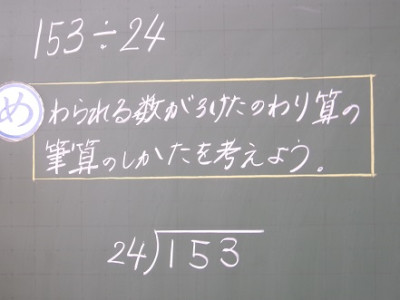 153÷24
め
わられる数が3けたのわり算の
筆算のしかたを考えよう。
24)153